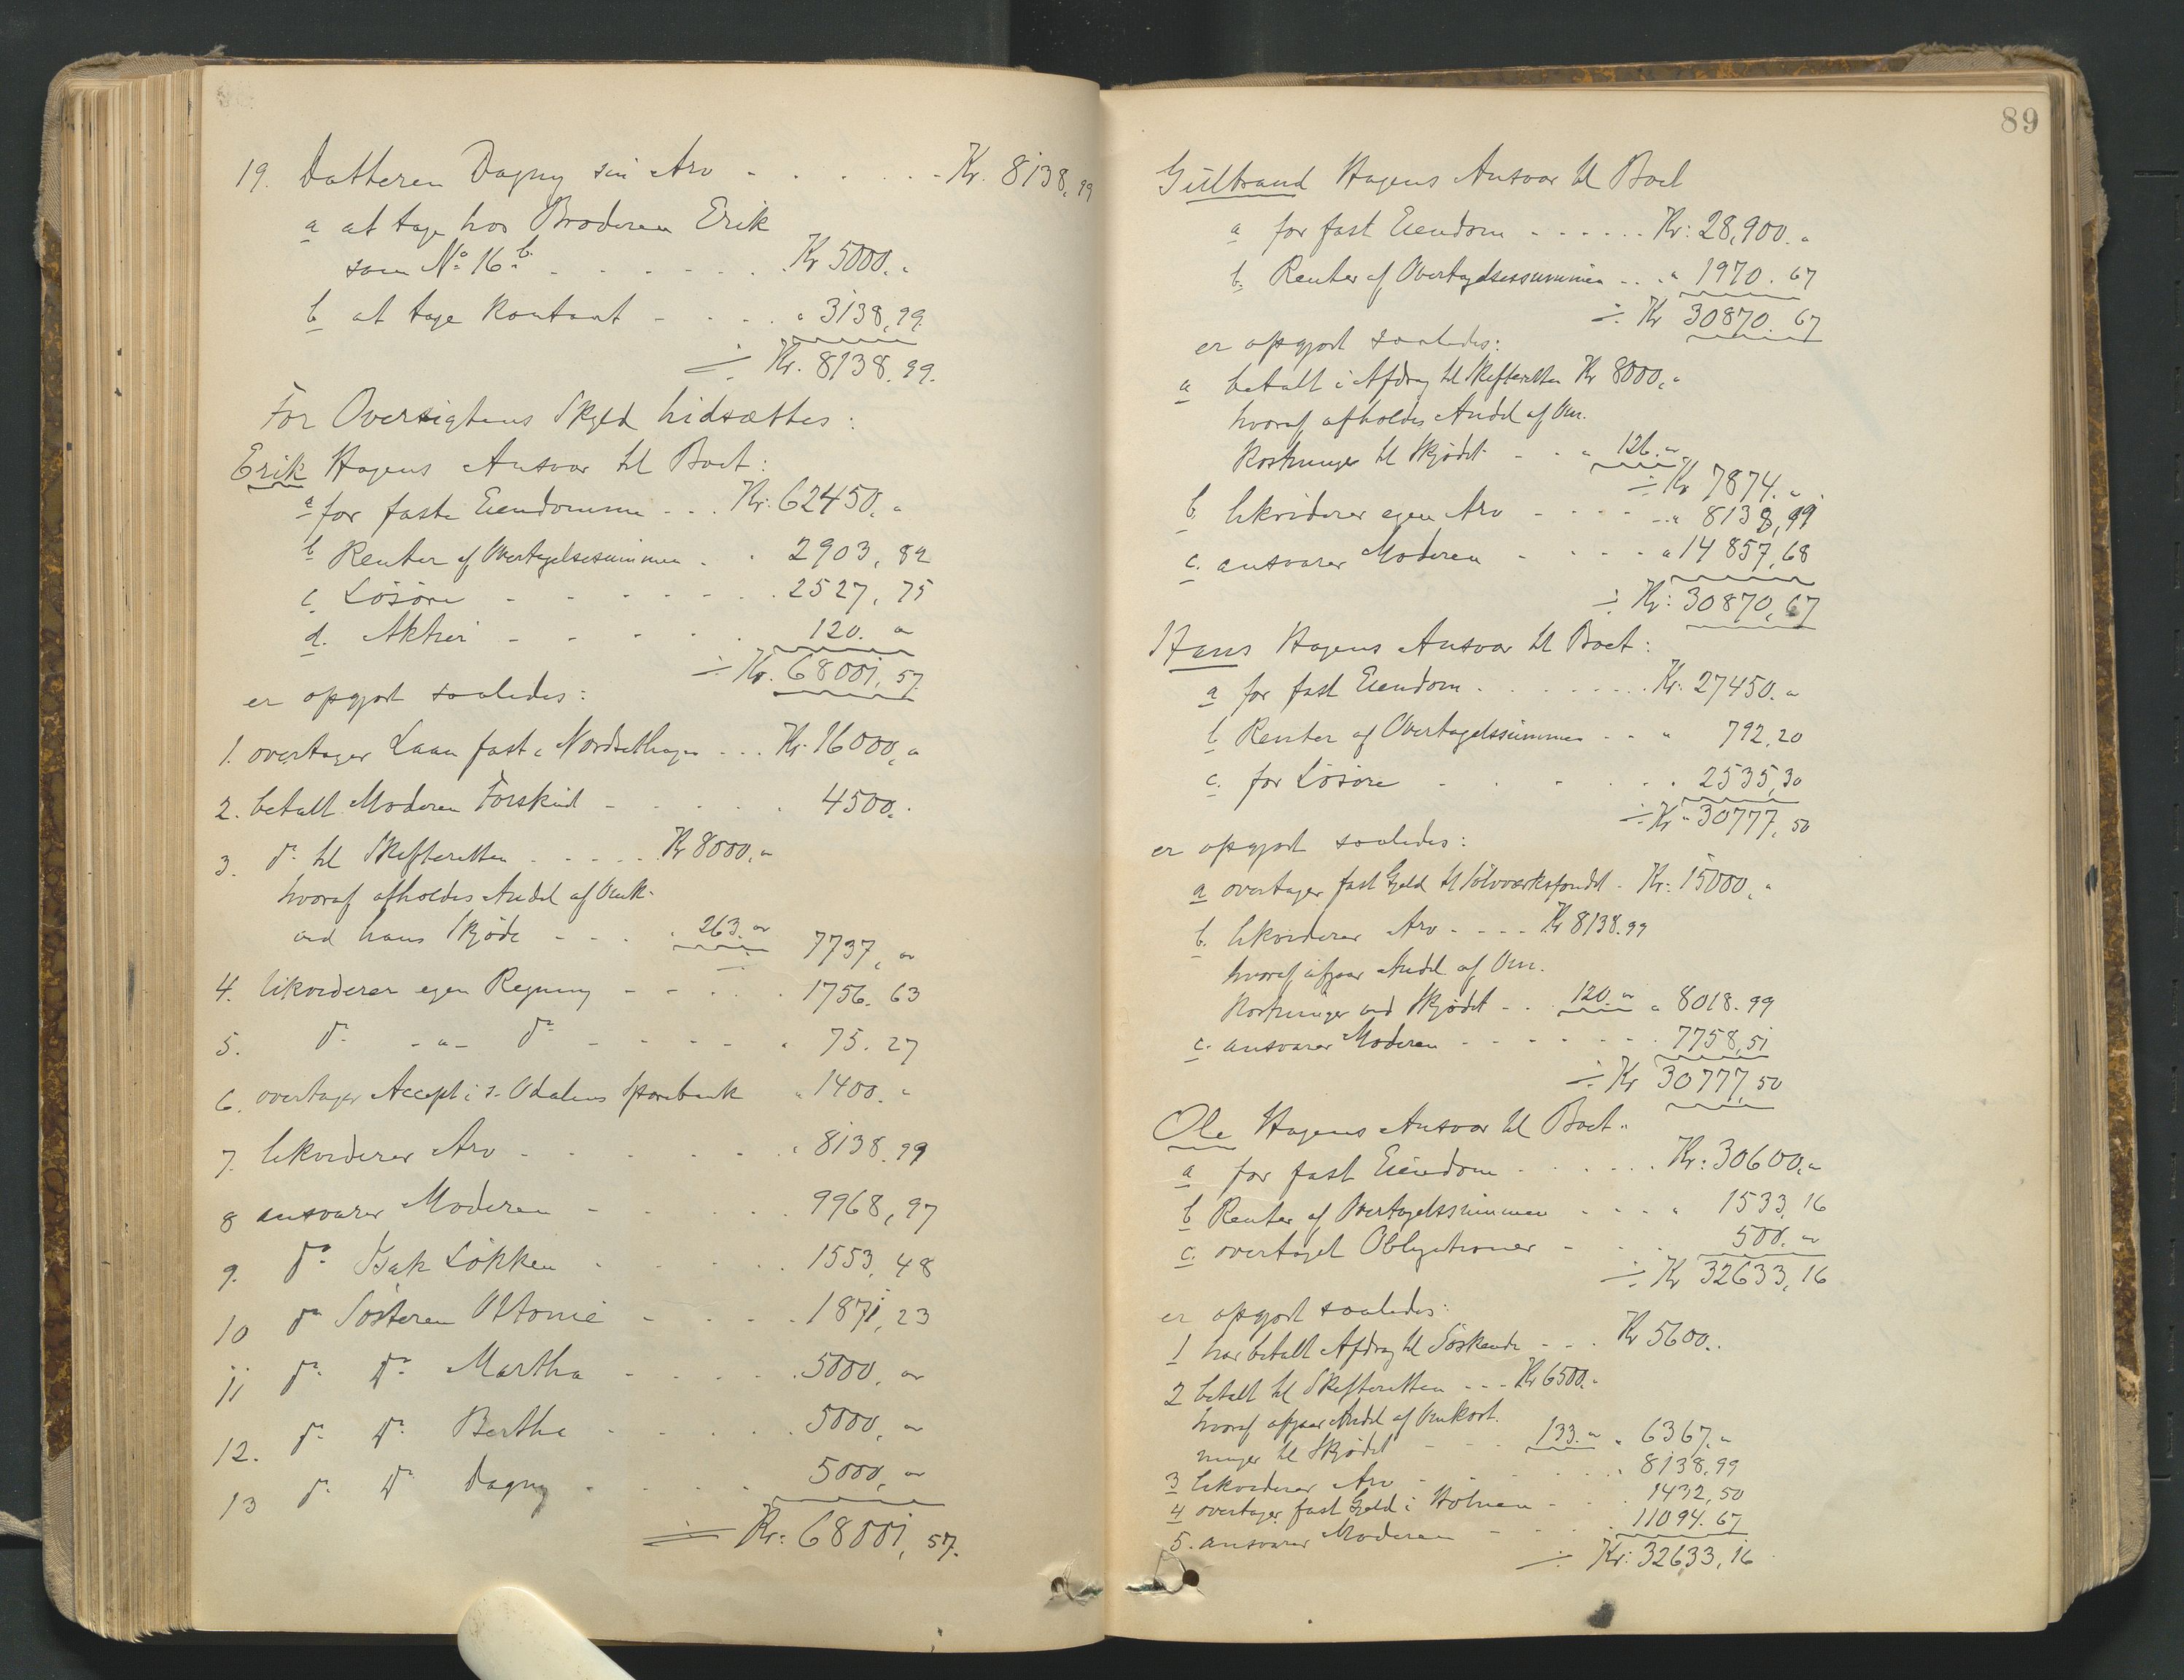 19. Datteren Dagny sin Arv - . . . . . - Kr. 8138,99
a at tage hos Broderen Erik
som No 16 b. . . . . . . Kr 5000. "
b at tage kontant - . . . " 3138,99.
÷ Kr. 8138.99.
For Oversigtens Skyld hidsættes:
Erik Hagens Ansvar til Boet:
a for faste Eiendomme . . . Kr: 62450. "
b Renter af Overtagelsessummen . . 2903,82
c. Løsøre - - - - - - . 2527,75
d. Aktier - - - - . 120. "
÷ Kr. 68001,57
er opgjort saaledes:
1. overtager Laan fast i Nordsethagen . . . Kr: 16000, "
2. betalt Moderen Forskud - . . . . 4500.
3. do til Skifteretten . . . . . Kr 8000, "
hvoraf afholdes Andel af Omk-
ved hans Skjøde - . . . 263. " 7737, "
4. likviderer egen Regning - - . . . 1756.63
5. do - " - do - - - - - " 75.27
6. overtager Accept i s. Odalens Sparebank " 1400. "
7. likviderer Arv . . . . . . . " 8138.99
8 ansvarer Moderen - . . . . . 9968,97
9. do Isak Løkken - . . . . 1553,48
10 do Søsteren Ottonie - . . . . 1871,23
11 do do Martha - . . . . 5000, "
12. do do Bertha - . . . . . 5000, "
13 do do Dagny . . . . . 5000, "
÷ Kr: 68001,57.
89
Gulbrand Hagens Ansvar til Boet
a for fast Eiendom . . . . . . Kr: 28,900. "
b. Renter af Overtagelsessummen . . " 1970.67
÷ Kr 30870.67
er opgjort saaledes:
a betalt i Afdrag til Skifteretten Kr 8000, "
hvoraf afholdes Andel af Om-
kostninger til Skjødet - . . " 126. "
÷ Kr 7874. "
b. likviderer egen Arv - - - - . . " 8138,99
c. ansvarer Moderen - . . . . " 14857,68
÷ Kr: 30870,67
Hans Hagens Ansvar til Boet:
a for fast Eiendom . . . . . . . . Kr: 27450. "
b Renter af Overtagelssummen . . " 792.20
c. for Løsøre - . . - . . . 2535,30
÷ Kr " 30777,50
er opgjort saaledes:
a overtager fast Gjeld til Sølvværksfondet . Kr: 15000, "
b. likviderer Arv . - - - Kr 8138.99
hvoraf afgaar Andel af Om-
kostninger ved Skjødet - . . 120. " " 8018.99
c. ansvarer Moderen - - - - - - . 7758,51
÷ Kr 30777,50
Ole Hagens Ansvar til Boet "
a for fast Eiendom . . . . . . Kr: 30600, "
b Renter af Overtagelssummen . . . . " 1533,16
c. overtaget Obligationer - . . . 500. "
÷ Kr 32633,16
er opgjort saaledes:
1 har betalt Afdrag til Søskende - . . Kr 5600..
2 betalt til Skifteretten . - - Kr 6500. "
hvoraf afgaar Andel af Omkost-
ninger til Skjødet - - . . 133. " " 6367. "
3 likviderer Arv . . . . . . . 8138,99
4 overtager fast Gjeld i Holmen - . . . 1432,50
5. ansvarer Moderen - - . . . . 11094.67
÷ Kr: 32633,16